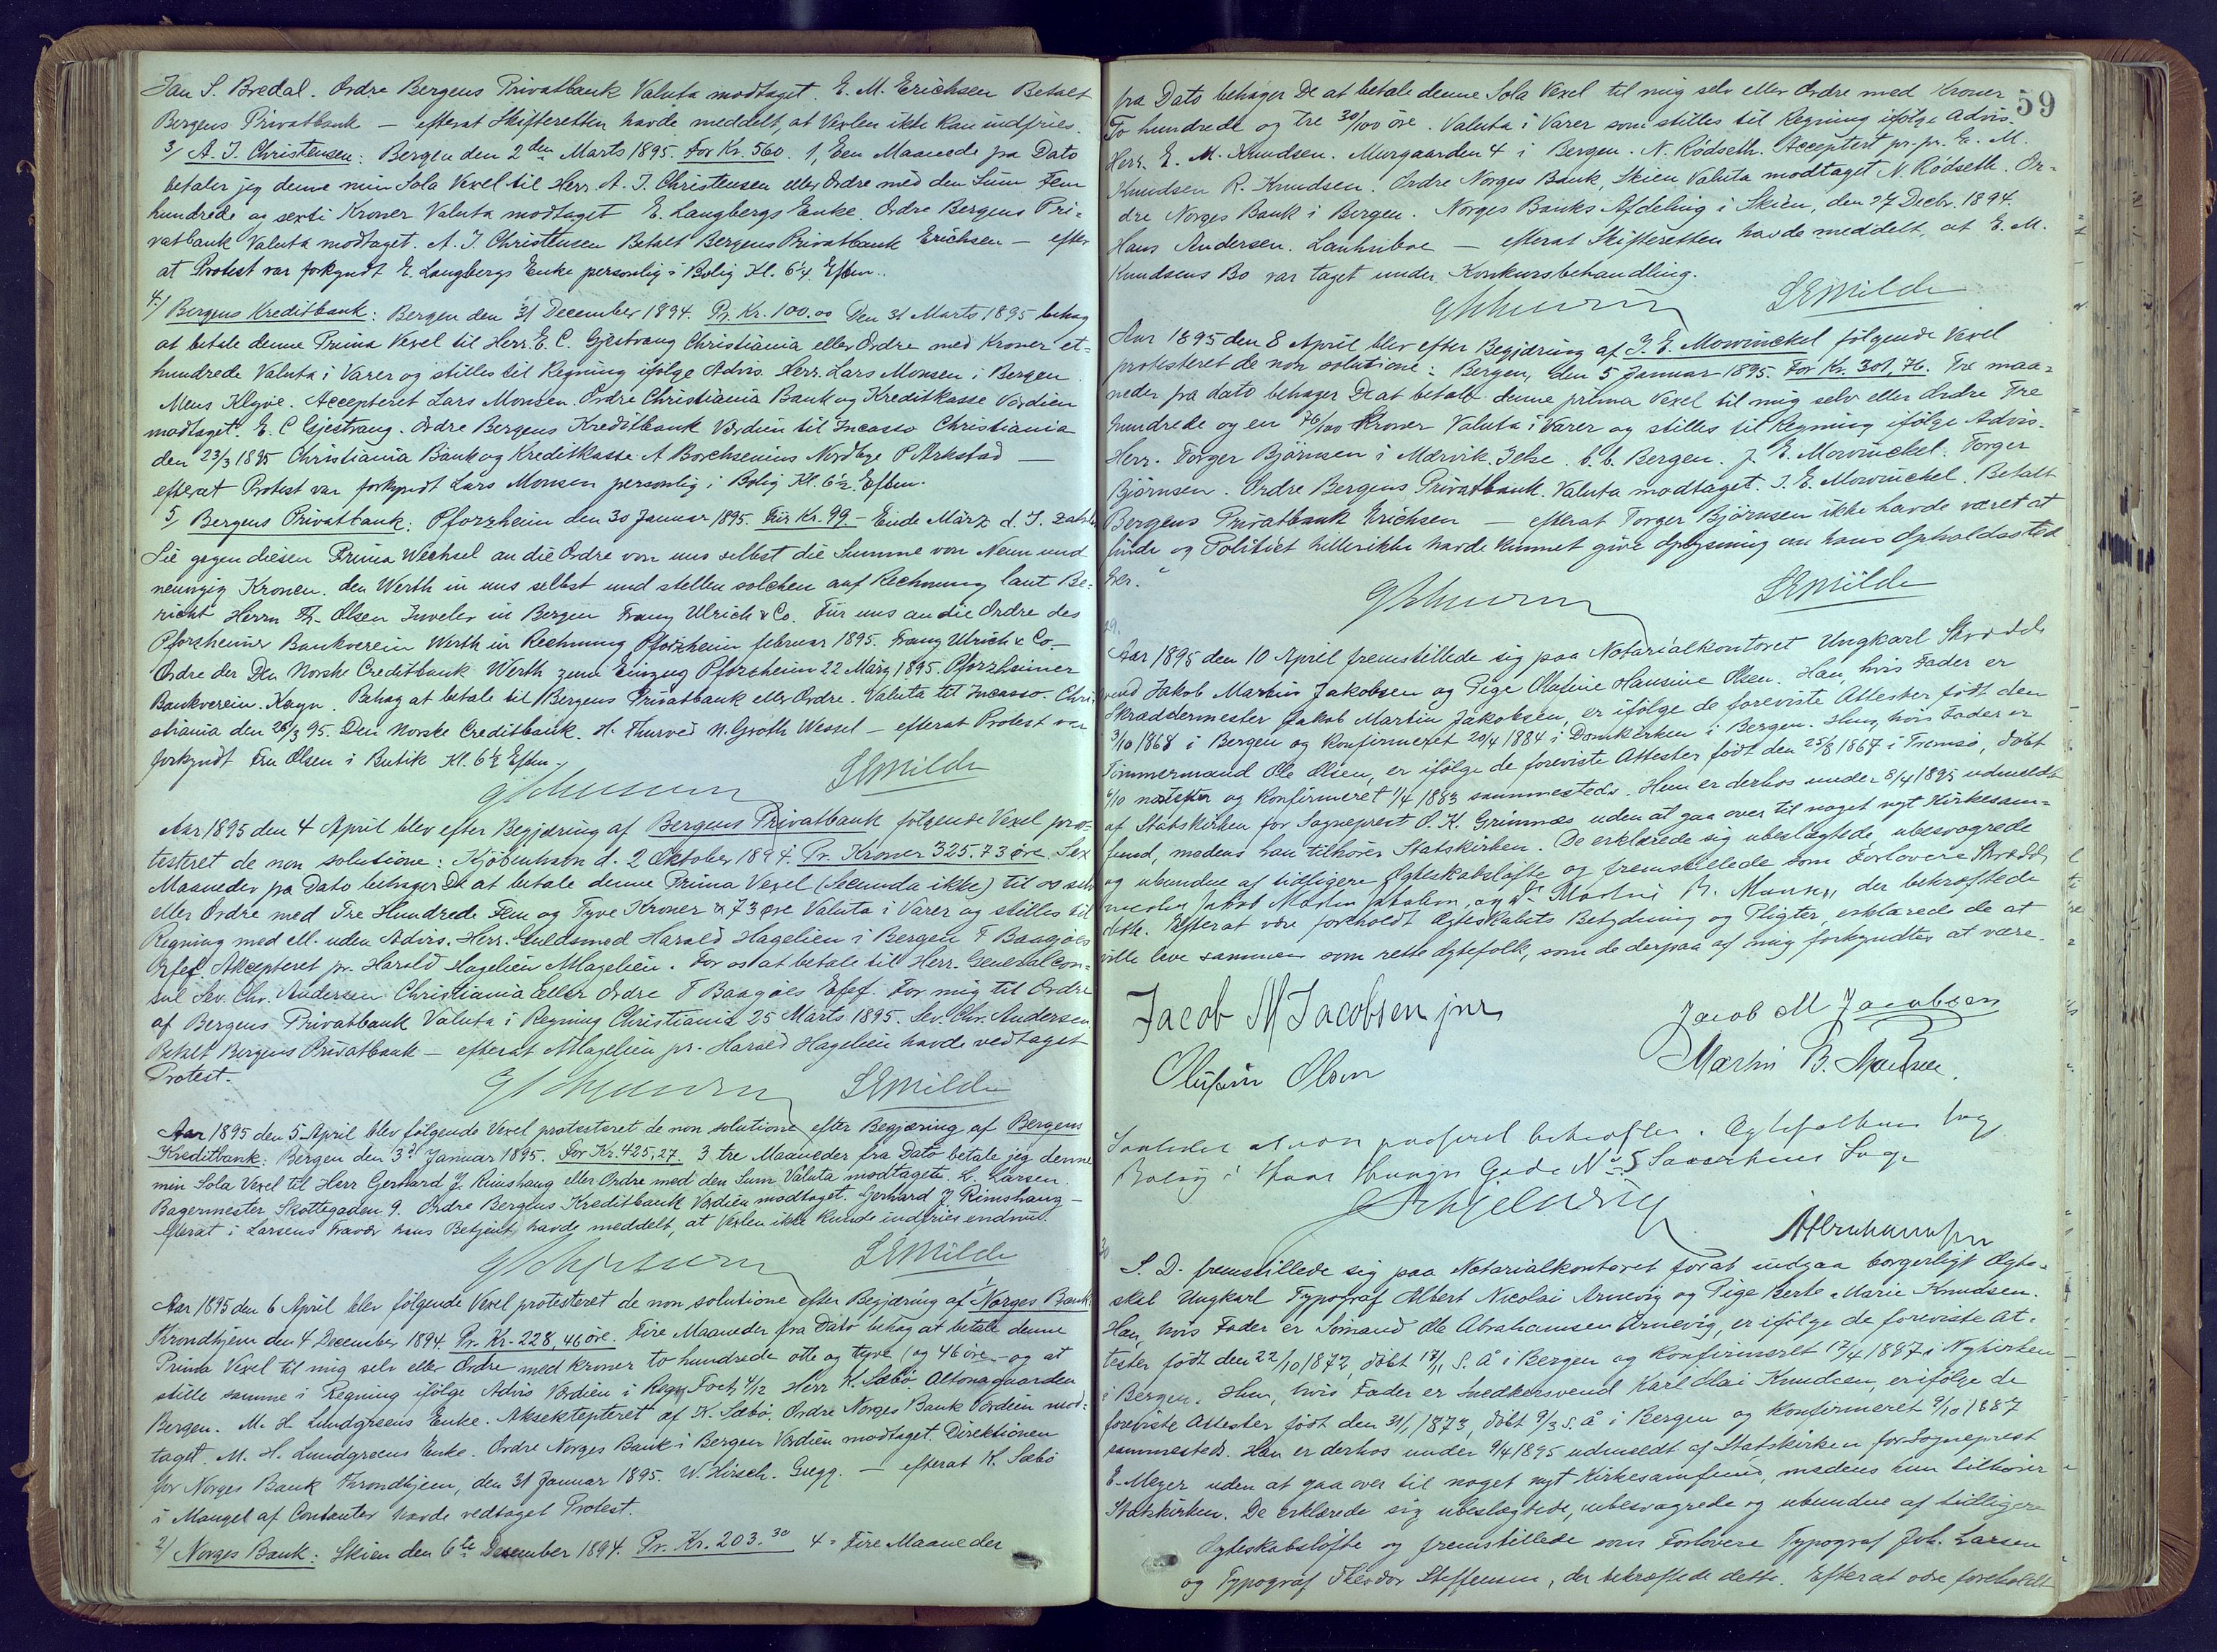 Jan S. Bredal. Ordre Bergens Privatbank Valuta modtaget. E. M. Erichsen Betalt
Bergens Privatbank — efterat Skifteretten havde meddelt, at Vexlen ikke kan indfries.
3/ A. J. Christensen: Bergen den 2den Marts 1895. For Kr. 560. 1, Een Maaned fra Dato
betaler jeg denne min Sola Vexel til Herr A. J. Christensen eller Ordre med den Sum Fem
hundrede og sexti Kroner Valuta modtaget E. Langbergs Enke. Ordre Bergens Pri-
vatbank Valuta modtaget. A. J. Christensen Betalt Bergens Privatbank Erichsen — efter
at Protest var forkyndt E. Langbergs Enke personlig i Bolig Kl. 6¼ Eftm.
4/ Bergens Kreditbank: Bergen den 31 December 1894. Pr. Kr. 100.00 Den 31 Marts 1895 behag
at betale denne Prima Vexel til Herr E. C. Gjestvang Christiania eller Ordre med Kroner et-
hundrede Valuta i Varer og stilles til Regning ifølge Advis. Herr Lars Monsen i Bergen.
Mens Klyve. Accepteret Lars Monsen. Ordre Christiania Bank og Kreditkasse Værdien
modtaget. E. C Gjestvang. Ordre Bergens Kreditbank Værdien til Incasso Christiania
den 23/3 1895 Christiania Bank og Kreditkasse A Borchsenius Nordbye P Arkstad —
efterat Protest var forkyndt Lars Monsen personlig i Bolig Kl. 6½ Eftm.
5/ Bergens Privatbank: Pforzheim den 30 Januar 1895. Für Kr. 99 – Ende März d. J. zahlen
Sie gegen diesen Prima Wechsel an die Ordre von uns selbst die Summe von Neun und
neunzig Kronen. den Werth in uns selbst und stellen solchen auf Rechnung laut Be-
richt Herrn Th. Olsen Juveler in Bergen Franz Ulrich & Co. Für uns an die Ordre des
Pforzheimer Bankverein Werth in Rechnung Pforzheim februar 1895. Franz Ulrich & Co. –
Ordre der Den Norske Creditbank Werth zum Einzug Pforzheim 22 März 1895. Pforzheimer
Bankverein. Kayn. Behag at betale til Bergens Privatbank eller Ordre. Valuta til Incasso. Chri-
stiania den 26/3 95. Den Norske Creditbank. H. Thurved N. Groth Wessel — efterat Protest var
forkyndt Fru Olsen i Butik Kl. 6½ Eftm.
SEMilde
Aar 1895 den 4 April blev efter Begjæring af Bergens Privatbank følgende Vexel pro-
testeret de non solutione: Kjöbenhavn d. 2 Oktober 1894. Pr. Kroner 325.73 øre. Sex
Maaneder fra Dato behager De at betale denne Prima Vexel (Secunda ikke) til os selv
eller Ordre med Tre Hundrede Fem og Tyve Kroner & 73 øre Valuta i Varer og stilles til
Regning med ell. uden Advis. Herr. Guldsmed Harald Hagelien i Bergen T Baagöes
Efef. Akcepteret pr. Harald Hagelien AHagelien. For os at betale til Herr. Generalcon-
sul Sev. Chr. Andersen Christiania Eller Ordre T Baagöes Efef. For mig til Ordre
af Bergens Privatbank Valuta i Regning Christiania 25 Marts 1895. Sev. Chr. Andersen
Betalt Bergens Privatbank — efterat AHagelien pr. Harald Hagelien havde vedtaget
Protest.
SEMilde
Aar 1895 den 5 April blev følgende Vexel protesteret de non solutione efter Begjæring af Bergens
Kreditbank: Bergen den 3d Januar 1895. For Kr. 425,27. 3 tre Maaneder fra Dato betale jeg denne
min Sola Vexel til Herr Gerhard J. Rimshaug eller Ordre med den Sum Valuta modtaget. L. Larsen.
Bagermester Skottegaden 9. Ordre Bergens Kreditbank Værdien modtaget. Gerhard J. Rimshaug –
efterat i Larsens Fravær hans Betjent havde meddelt, at Vexlen ikke kunde indfries endnu.
SEMilde
Aar 1895 den 6 April blev følgende Vexel protesteret de non solutione efter Begjæring af Norges Bank:
Throndhjem den 4 December 1894. Pr. Kr. 228,46 øre. Fire Maaneder fra Dato behag at betale denne
Prima Vexel til mig selv eller Ordre med kroner to hundrede otte og tyve (og 46 øre – og at
stille samme i Regning ifølge Advis Værdien i Regn. 4/12 Herr K. Sæbø Altonagaarden
Bergen. M. H Lundgreens Enke. Aksektepteret af K. Sæbø. Ordre Norges Bank Værdien mod-
taget. M. H. Lundgreens Enke. Ordre Norges Bank i Bergen Værdien modtaget. Direktionen
for Norges Bank Throndhjem, den 31 Januar 1895. W. Hirsch. Gregg. — efterat K. Sæbø
i Mangel af Contanter havde vedtaget Protest.
2/ Norges Bank: Skien den 6te December 1894. Pr. Kr. 203.30 4 - Fire Maaneder
59
fra Dato behager De at betale denne Sola Vexel til mig selv eller Ordre med Kroner
To hundrede og tre 30/100 øre. Valuta i Varer som stilles til Regning ifølge Advis.
Herr. E. M. Knudsen. Murgaarden 4 i Bergen. N. Rödseth. Acceptert pr. pr. E. M.
Knudsen R. Knudsen. Ordre Norges Bank, Skien Valuta modtaget N. Rödseth. Or-
dre Norges Bank i Bergen. Norges Banks Afdeling i Skien, den 27 Decbr. 1894.
Hans Andersen. — efterat Skifteretten havde meddelt, at E. M.
Knudsens Bo var taget under Konkursbehandling.
SEMilde
Aar 1895 den 8 April blev efter Begjæring af J. E. Mowinckel følgende Vexel
protesteret de non solutione: Bergen, den 5 Januar 1895. For Kr. 301,76. Tre maa-
neder fra dato behager De at betale denne prima Vexel til mig selv eller Ordre Tre
hundrede og en 76/100 Kroner Valuta i Varer og stilles til Regning ifølge Advis.
Herr. Torger Björnsen i Mærvik. Jelse. b. b. Bergen. J. E. Mowinckel. Torger
Björnsen. Ordre Bergens Privatbank. Valuta modtaget. J. E. Mowinckel. Betalt
Bergens Privatbank Erichsen — efterat Torger Björnsen ikke havde været at
finde og Politiet hellerikke havde kunnet give Oplysning om hans Opholdssted
her.
SEMilde
29.
Aar 1895 den 10 April fremstillede sig paa Notarialkontoret Ungkarl Skrædder-
svend Jakob Martin Jakobsen og Pige Olufine Hansine Olsen. Han, hvis Fader er
Skræddermester Jakob Martin Jakobsen, er ifølge de foreviste Attester født den
3/10 1868 i Bergen og konfirmeret 20/4 1884 i Domkirken i Bergen. Hun, hvis Fader er
Tømmermand Ole Olsen, er ifølge de foreviste Attester født den 25/8 1867 i Tromsø, døbt
6/10 næstefter og konfirmeret 1/4 1883 sammesteds. Hun er derhos under 8/4 1895 udmeldt
af Statskirken for Sogneprest O. K. Grimnæs uden at gaa over til noget nyt Kirkesam-
fund, medens han tilhører Statskirken. De erklærede sig ubeslægtede, ubesvogrede
og ubundne af tidligere Ægteskabsløfte og fremstillede som Forlovere Skrædder-
mester Jakob Martin Jakobsen, og Do Martin B. Manns, der bekræftede
dette. Efterat være foreholdt Ægteskabets Betydning og Pligter, erklærede de at
ville leve sammen som rette Ægtefolk, som de derpaa af mig forkyndtes at være.
Jacob M Jacobsen jnr
Jacob M Jacobsen
Olufine Olsen
Martin B.
Saaledes at være passeret bekræftes. Ægtefolkene tog
Bolig i Gade No 5 Sogn
30
S. D. fremstillede sig paa Notarialkontoret forat indgaa borgerligt Ægte-
skab Ungkarl Typograf Albert Nicolai Arnevig og Pige Berte Marie Knudsen.
Han, hvis Fader er Sømand Ole Abrahamsen Arnevig, er ifølge de foreviste At-
tester født den 22/10 1872, døbt 17/11 S. Å i Bergen og konfirmeret 17/4 1887 i Nykirken
i Bergen. Hun, hvis Fader er Snedkersvend Karl Olai Knudsen, er ifølge de
foreviste Attester født den 31/1 1873, døbt 9/3 s. å i Bergen og konfirmeret 9/10 1887
sammesteds. Han er derhos under 9/4 1895 udmeldt af Statskirken for Sogneprest
E. Meyer uden at gaa over til noget nyt Kirkesamfund, medens hun tilhører
Statskirken. De erklærede sig ubeslægtede, ubesvogrede og ubundne af tidligere
Ægteskabsløfte og fremstillede som Forlovere Typograf Joh. Larsen
og Typograf Theodor Steffensen, der bekræftede dette. Efterat være foreholdt